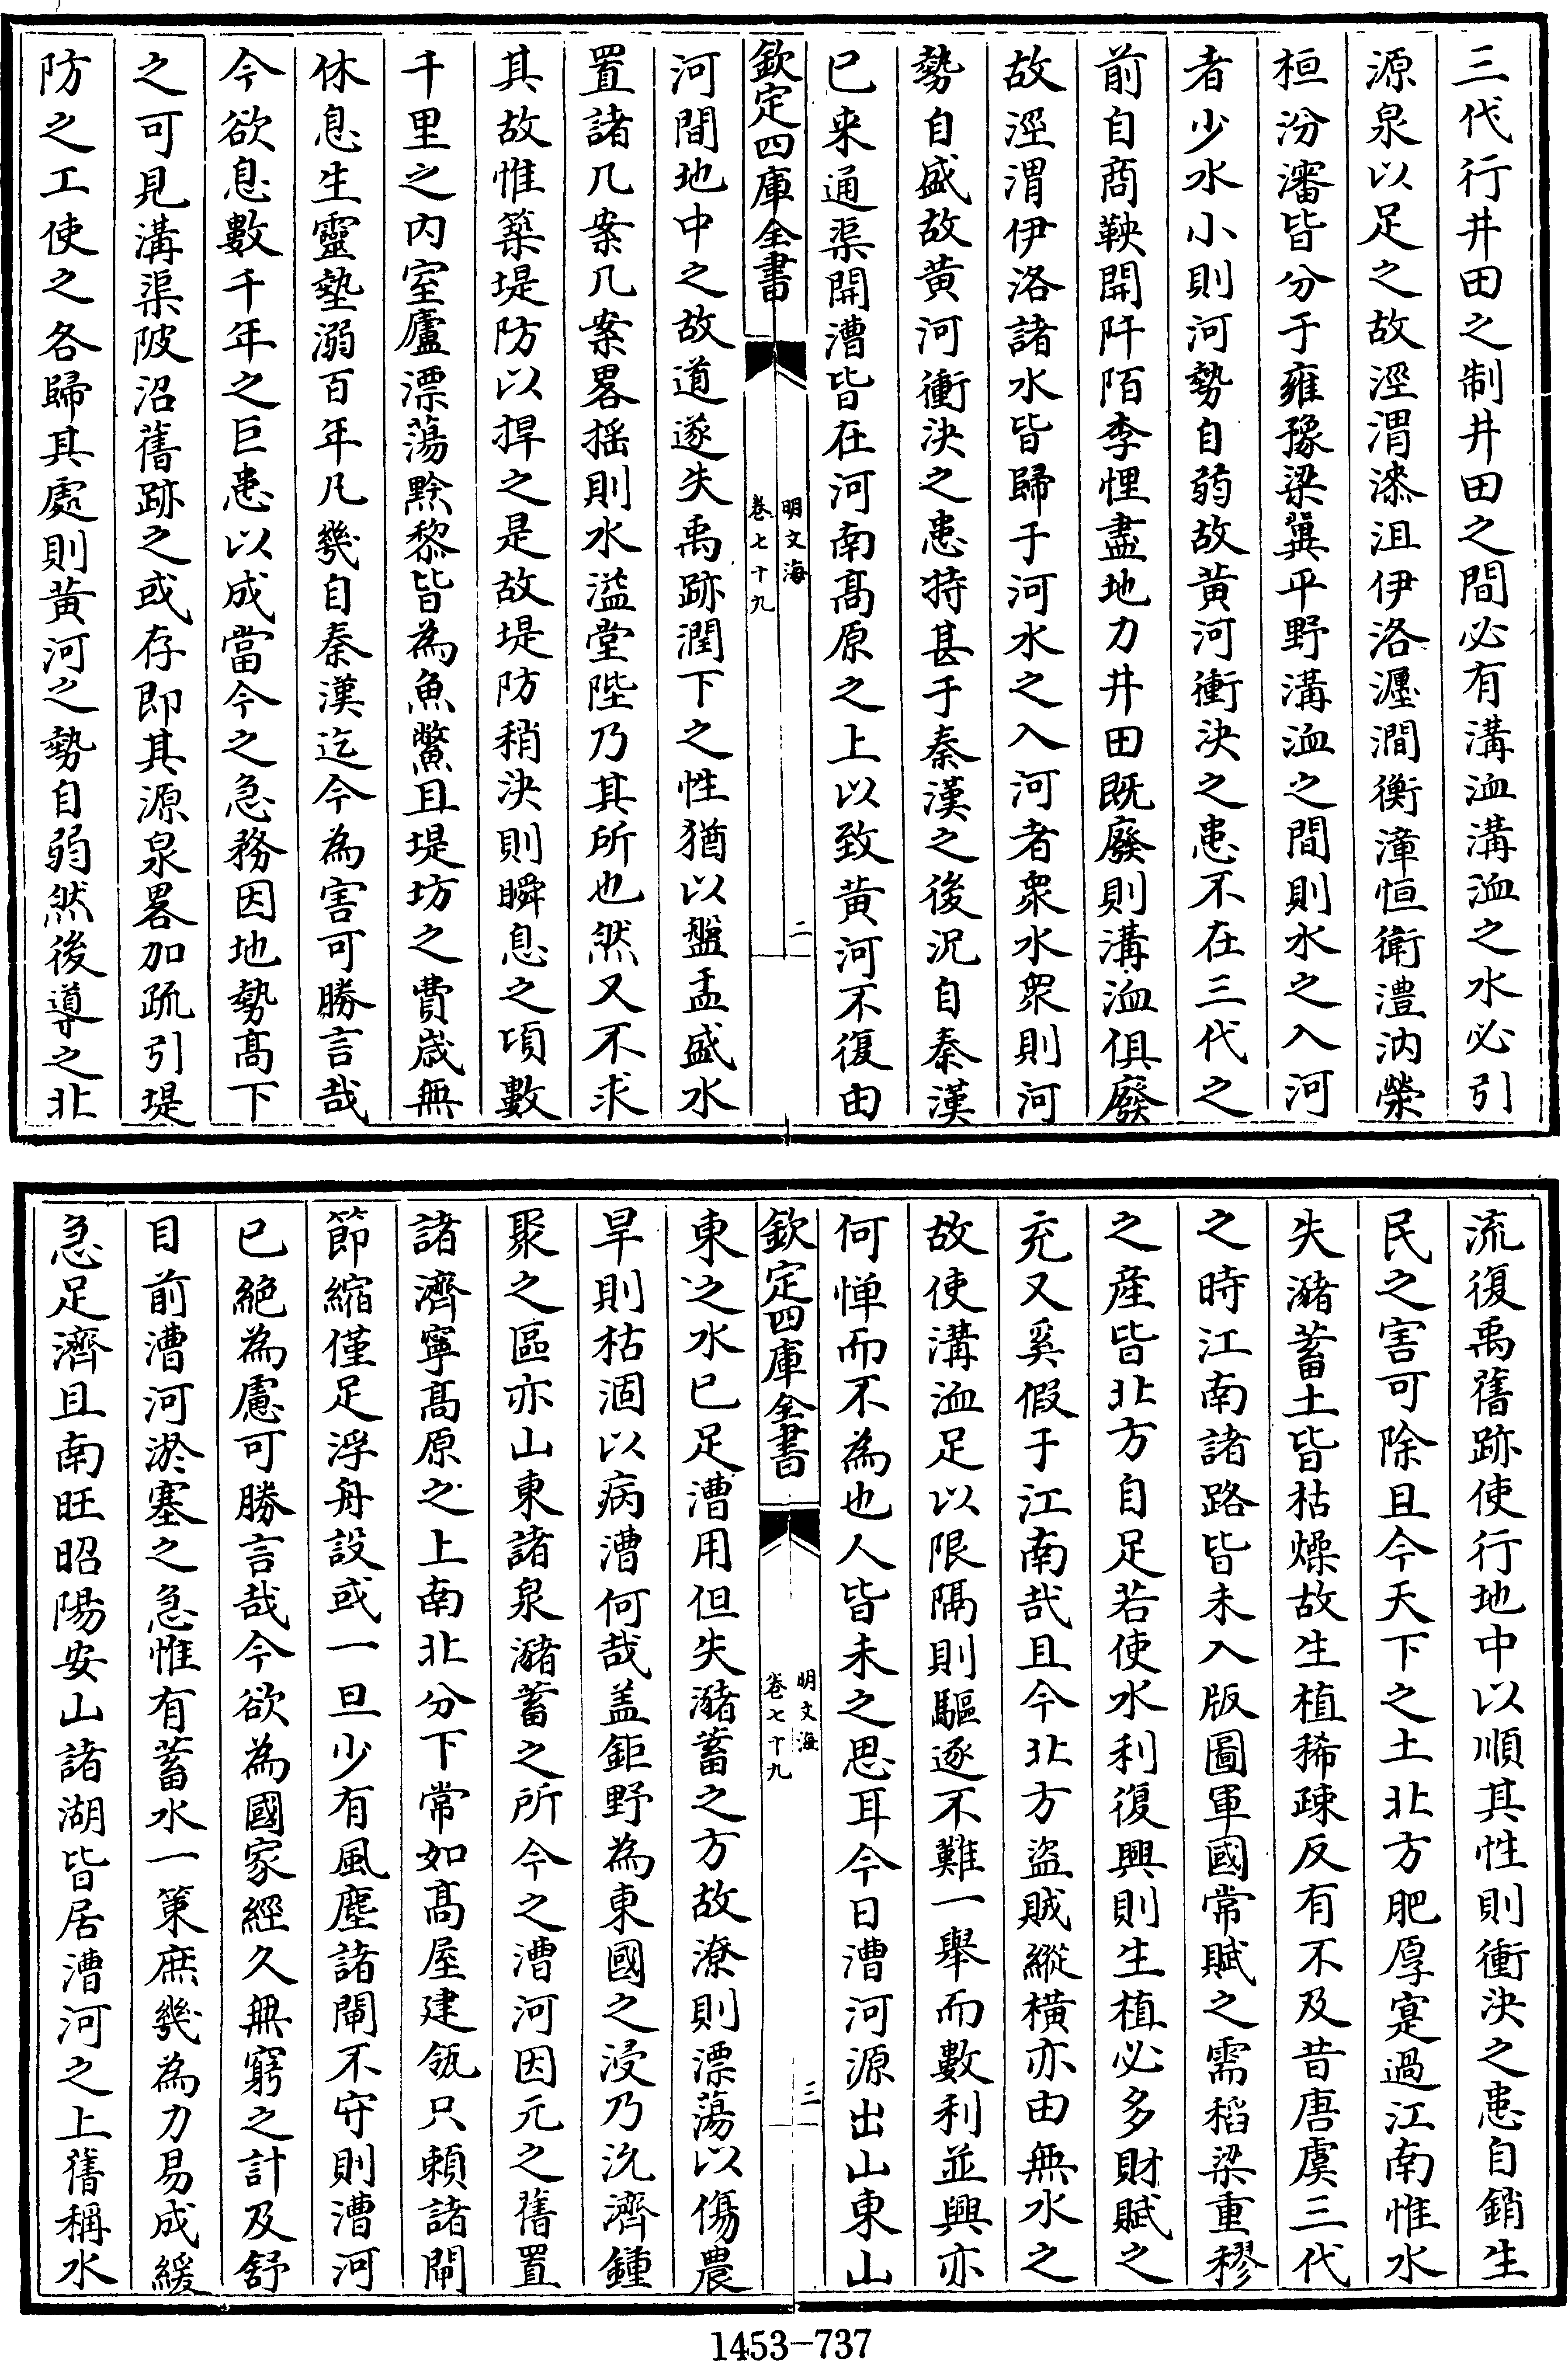 三代行井田之制井田之間必有溝洫溝洫之水必引
源泉以足之故涇渭漆沮伊洛瀍澗衡漳恒衛澧汭榮
桓汾瀋皆分于雍豫梁冀平野溝洫之間則水之入河
者少水小則河勢自弱故黃河衝決之患不在三代之
前自商鞅開阡陌李悝盡地力井田既廢則溝洫俱廢
故涇渭伊洛諸水皆歸于河水之入河者衆水衆則河
勢自盛故黃河衝決之患特甚于秦漢之後況自秦漢
已来通渠開漕皆在河南髙原之上以致黃河不復由
欽定四庫全書
明文海
卷七十九
二
河間地中之故道遂失禹跡潤下之性猶以盤盂盛水
置諸几案几案畧揺則水溢堂陛乃其所也然又不求
其故惟築堤防以捍之是故堤防稍決則瞬息之頃數
千里之內室廬漂蕩黔黎皆為魚鱉且堤坊之費歲無
休息生靈墊溺百年凡幾自秦漢迄今為害可勝言哉
今欲息數千年之巨患以成當今之急務因地勢髙下
之可見溝渠陂沼舊跡之或存即其源泉畧加疏引堤
防之工使之各歸其處則黃河之勢自弱然後導之北
流復禹舊跡使行地中以順其性則衝決之患自銷生
民之害可除且今天下之土北方肥厚寔過江南惟水
失瀦蓄土皆枯燥故生植稀疎反有不及昔唐虞三代
之時江南諸路皆未入版圖軍國常賦之需稻粱重穋
之產皆北方自足若使水利復興則生植必多財賦之
充又奚假于江南哉且今北方盜賊縱橫亦由無水之
故使溝洫足以限隔則驅逐不難一舉而數利並興亦
何憚而不為也人皆未之思耳今日漕河源出山東山
欽定四庫全書
明文海
卷七十九
三
東之水已足漕用但失瀦蓄之方故潦則漂蕩以傷農
旱則枯涸以病漕何哉盖鉅野為東國之浸乃沇濟鍾
聚之區亦山東諸泉瀦蓄之所今之漕河因元之舊置
諸濟寧髙原之上南北分下常如髙屋建瓴只賴諸閘
節縮僅足浮舟設或一旦少有風塵諸閘不守則漕河
已絕為慮可勝言哉今欲為國家經久無窮之計及舒
目前漕河淤塞之急惟有蓄水一策庶幾為力易成緩
急足濟且南旺昭陽安山諸湖皆居漕河之上舊稱水
1453-737